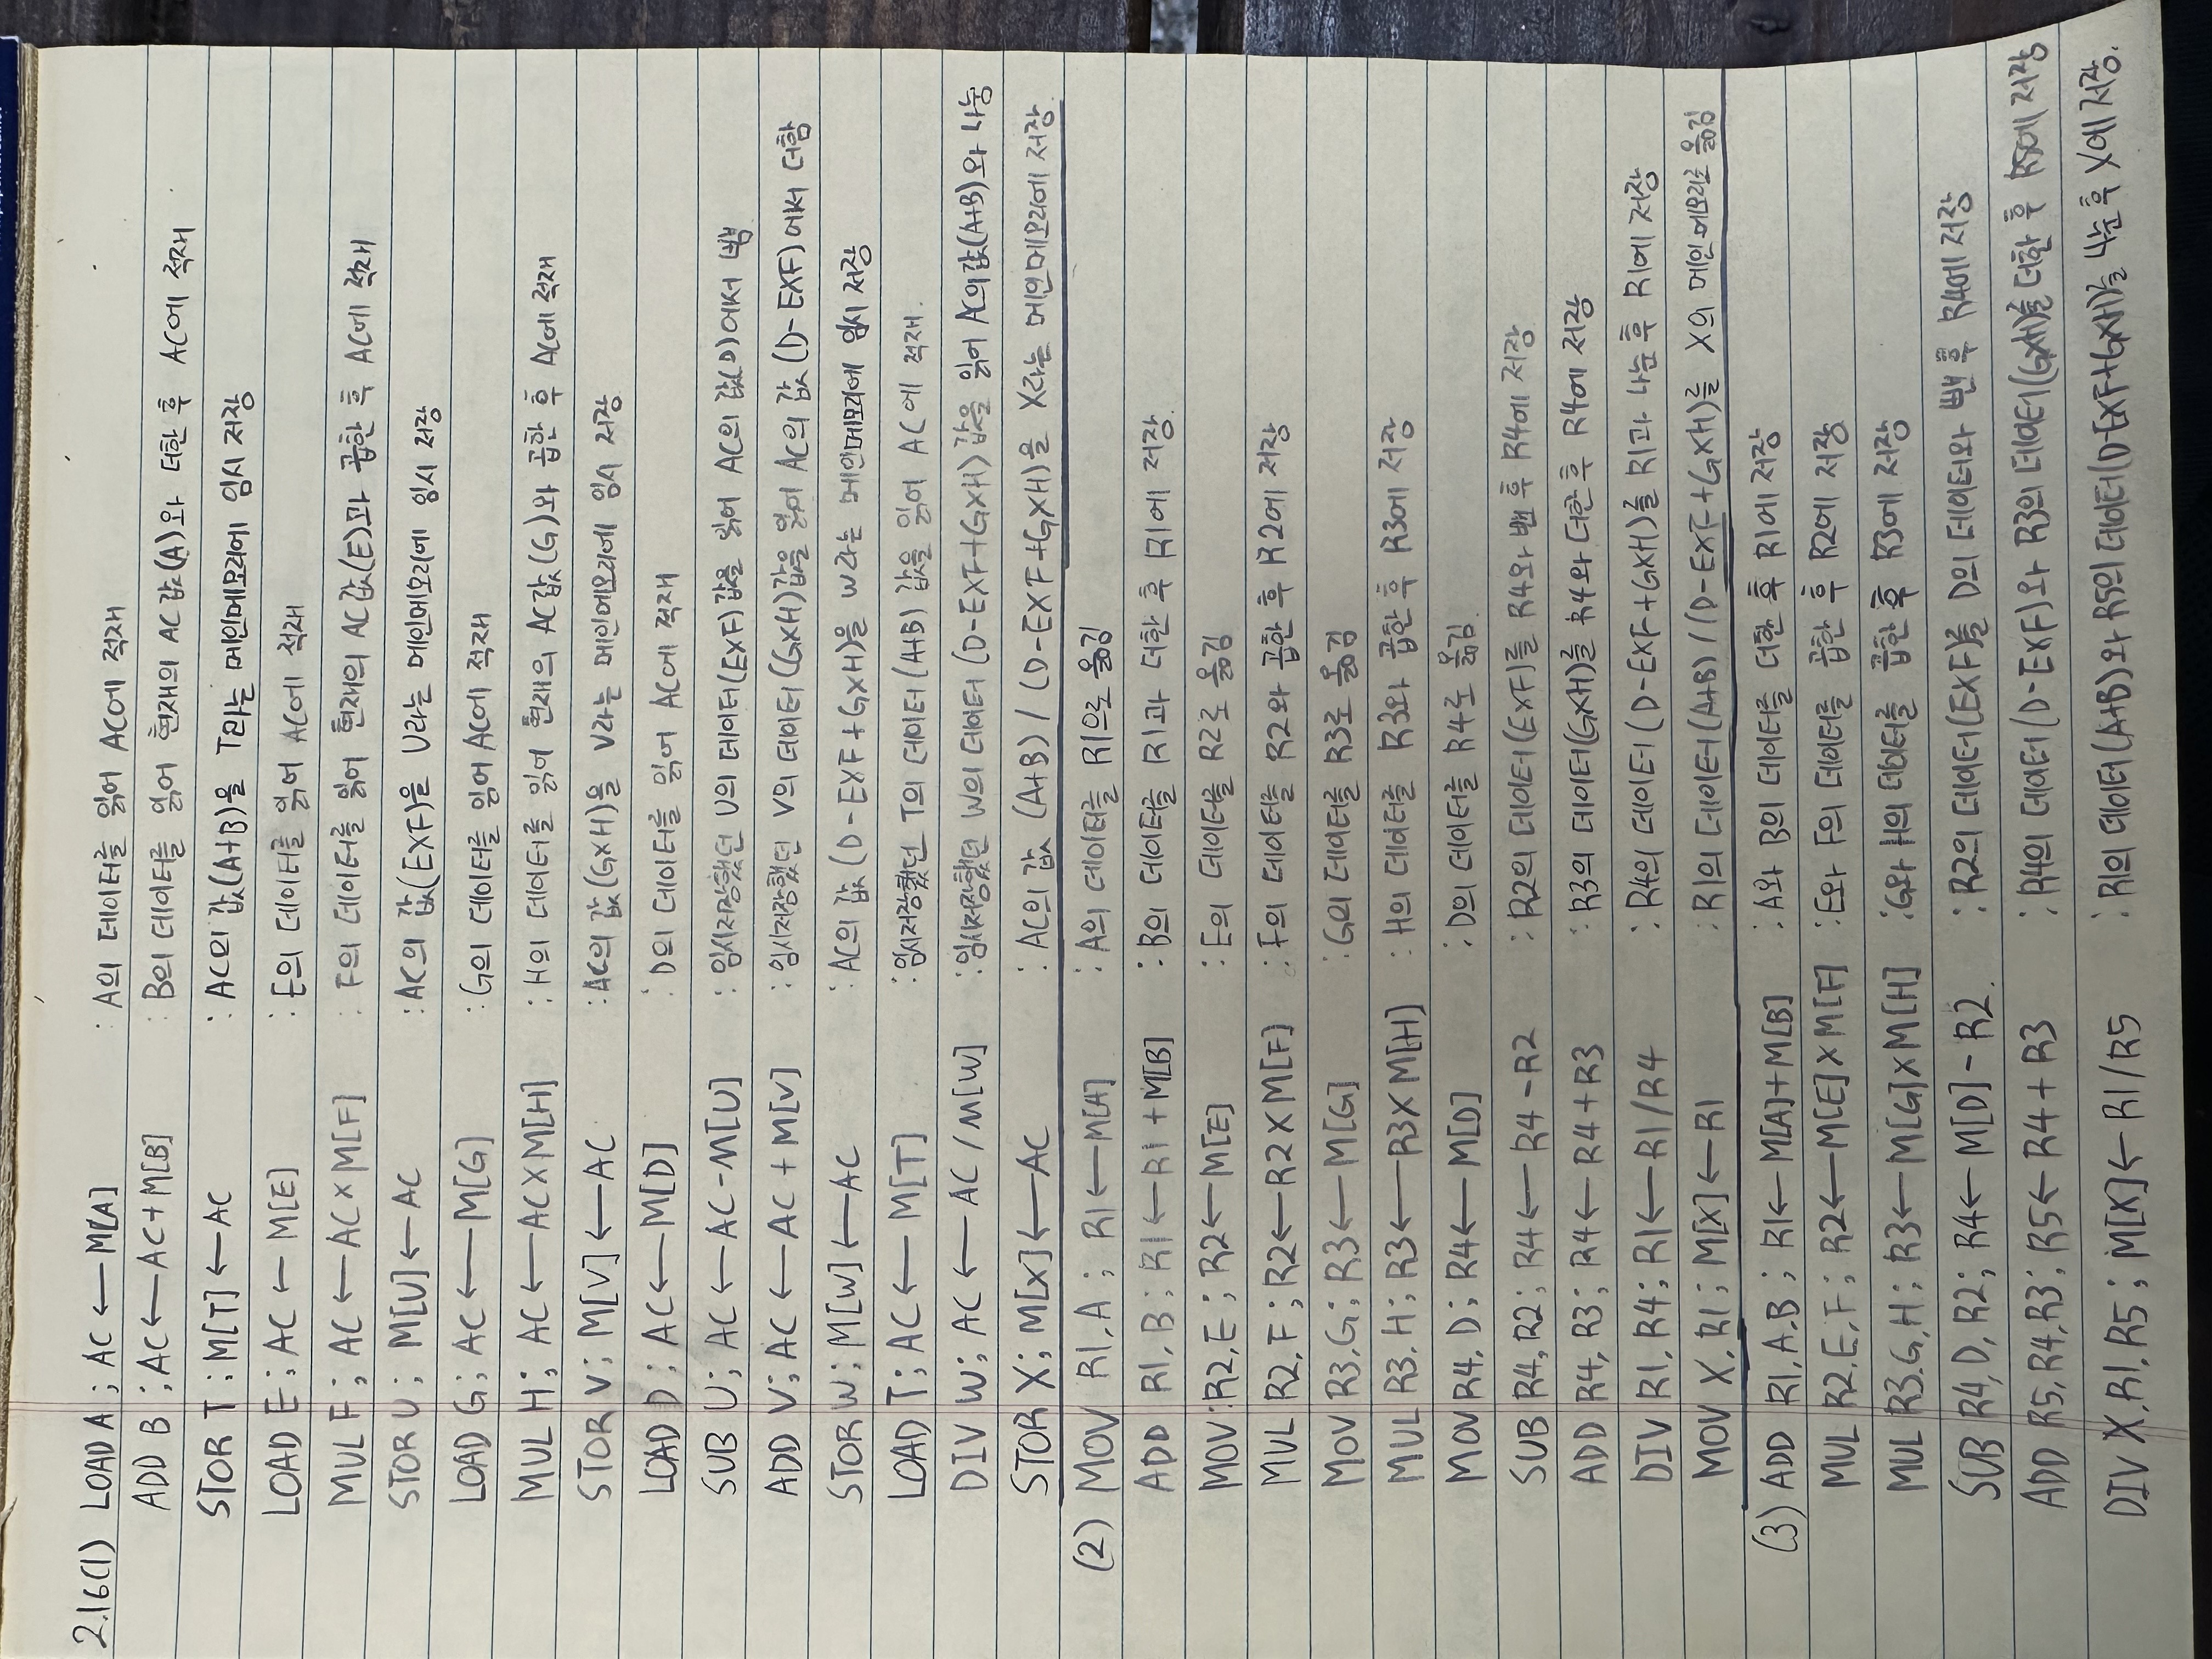 2.16(1) LOAD A ; AC ← M[A] : A의 데이터를 읽어 AC에 적재
ADD B ; AC ← AC+M[B] : B의 데이터를 읽어 현재의 AC값(A)와 더한 후 AC에 적재
STOR T ; M[T] ← AC : AC의 값(A+B)을 T라는 메인메모리에 임시 저장
LOAD E ; AC ← M[E] : E의 데이터를 읽어 AC에 적재
MUL F ; AC ← AC×M[F] : F의 데이터를 읽어 현재의 AC값(E)과 곱한 후 AC에 적재
STOR U ; M[U] ← AC : AC의 값(E×F)을 U라는 메인메모리에 임시 저장
LOAD G ; AC ← M[G] : G의 데이터를 읽어 AC에 적재
MUL H ; AC ← AC×M[H] : H의 데이터를 읽어 현재의 AC값(G)와 곱한 후 AC에 적재
STOR V ; M[V] ← AC : AC의 값(G×H)을 V라는 메인메모리에 임시 저장
LOAD D ; AC ← M[D] : D의 데이터를 읽어 AC에 적재
SUB U ; AC ← AC-M[U] : 임시저장했던 U의 데이터(E×F)값을 읽어 AC의 값(D)에서 뺌
ADD V ; AC ← AC + M[V] : 임시저장했던 V의 데이터(G×H)값을 읽어 AC의 값 (D-E×F)에서 더함
STOR W ; M[W] ← AC : AC의 값 (D-E×F+G×H)을 W라는 메인메모리에 임시 저장
LOAD T ; AC ← M[T] : 임시저장했던 T의 데이터(A+B) 값을 읽어 AC에 적재.
DIV W ; AC ← AC / M[W] : 임시저장했던 W의 데이터 (D-E×F+G×H)값을 읽어 AC의 값(A+B)와 나눔
STOR X ; M[X] ← AC : AC의 값 (A+B) / (D-E×F+G×H)을 X라는 메인메모리에 저장.
(2) MOV R1, A ; R1 ← M[A] : A의 데이터를 R1으로 옮김
ADD R1, B ; R1 ← R1 + M[B] : B의 데이터를 R1과 더한 후 R1에 저장.
MOV R2, E ; R2 ← M[E] : E의 데이터를 R2로 옮김
MUL R2, F ; R2 ← R2 × M[F] : F의 데이터를 R2와 곱한 후 R2에 저장
MOV R3, G ; R3 ← M[G] : G의 데이터를 R3로 옮김
MUL R3, H ; R3 ← R3 × M[H] : H의 데이터를 R3와 곱한 후 R3에 저장
MOV R4, D ; R4 ← M[D] : D의 데이터를 R4로 옮김.
SUB R4, R2 ; R4 ← R4 - R2 : R2의 데이터(E×F)를 R4와 뺀 후 R4에 저장
ADD R4, R3 ; R4 ← R4 + R3 : R3의 데이터(G×H)를 R4와 더한 후 R4에 저장
DIV R1, R4 ; R1 ← R1/R4 : R4의 데이터 (D-E×F+G×H)를 R1과 나눈 후 R1에 저장
MOV X, R1 ; M[X] ← R1 : R1의 데이터(A+B) / (D-E×F+G×H)를 X의 메인메모리로 옮김
(3) ADD R1, A, B ; R1 ← M[A]+M[B] : A와 B의 데이터를 더한 후 R1에 저장
MUL R2, E, F ; R2 ← M[E]×M[F] : E와 F의 데이터를 곱한 후 R2에 저장
MUL R3, G, H ; R3 ← M[G]×M[H] : G와 H의 데이터를 곱한 후 R3에 저장
SUB R4, D, R2 ; R4 ← M[D] - R2. : R2의 데이터(E×F)를 D의 데이터와 뺀 후 R4에 저장
ADD R5, R4, R3 ; R5 ← R4 + R3 : R4의 데이터(D-E×F)와 R3의 데이터(G×H)를 더한 후 R5에 저장
DIV X, R1, R5 ; M[X] ← R1/R5 : R1의 데이터(A+B)와 R5의 데이터(D-E×F+G×H)를 나눈 후 X에 저장.